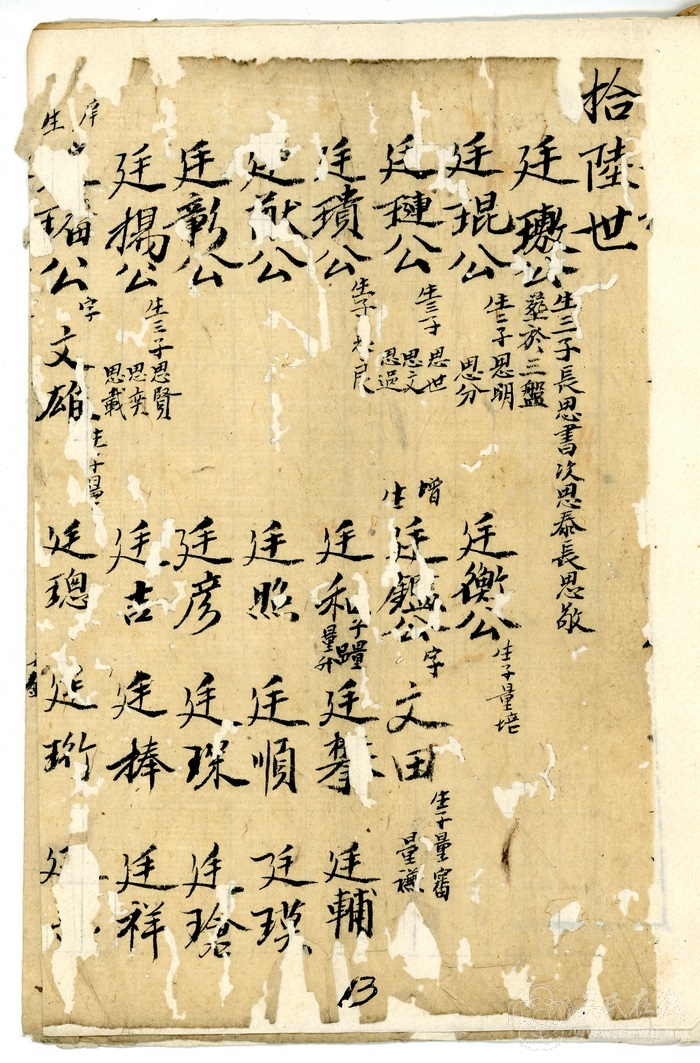 拾陸世
廷璈公
生三子長思書次思泰長思敬
葬於三盤
廷琨公
生二子思明
思分
廷璉公
生三子
思世
思文
思過
廷璝公
生子
良
廷猷公
廷彰公
廷揚公
生三子思賢
思奕
思載
庠生
公字文雄
生子量
廷衡公
生子量培
增生
廷鑑公字文田
生子量審
量謙
廷和
子量
量升
廷照
廷彥
廷吉
廷璁
廷
廷順
廷琛
廷棒
廷珩
廷輔
廷瑛
廷瑲
廷祥
13